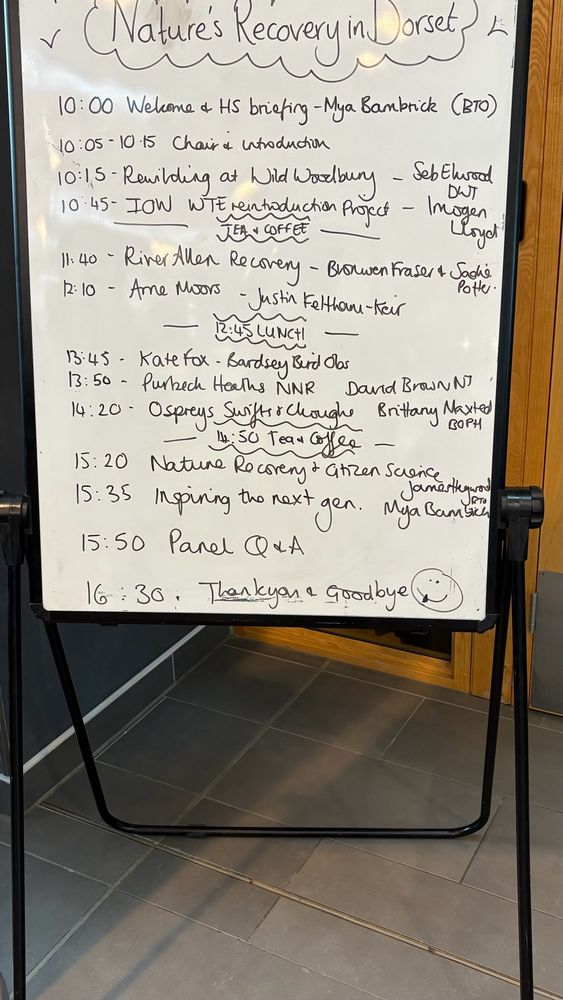 Nature's Recovery in Dorset
10:00 Welcome & HS briefing - Mya Bambrick (BTO)
10:05 - 10.15 Chair & introduction
10:15 - Rewilding at Wild Woodbury - Seb Elwood
DWT
10:45 - IOW WTE reintroduction Project - Imogen
Lloyd
TEA & COFFEE
11:40 - River Allen Recovery - Bronwen Fraser & Sadie
Potter.
12:10 - Arne Moors - Justin Feltham-Keir
12:45 LUNCH
13:45 - Kate Fox - Bardsey Bird Obs
13:50 - Purbeck Heaths NNR David Brown NT
14:20 - Ospreys Swifts & Choughs Brittany Maxted
BOPH
14:50 Tea & Coffee
15:20 Nature Recovery & Citizen Science
James Heywood
BTO
15:35 Inspiring the next gen. Mya Bambrick
15:50 Panel Q & A
16:30. Thankyou & Goodbye